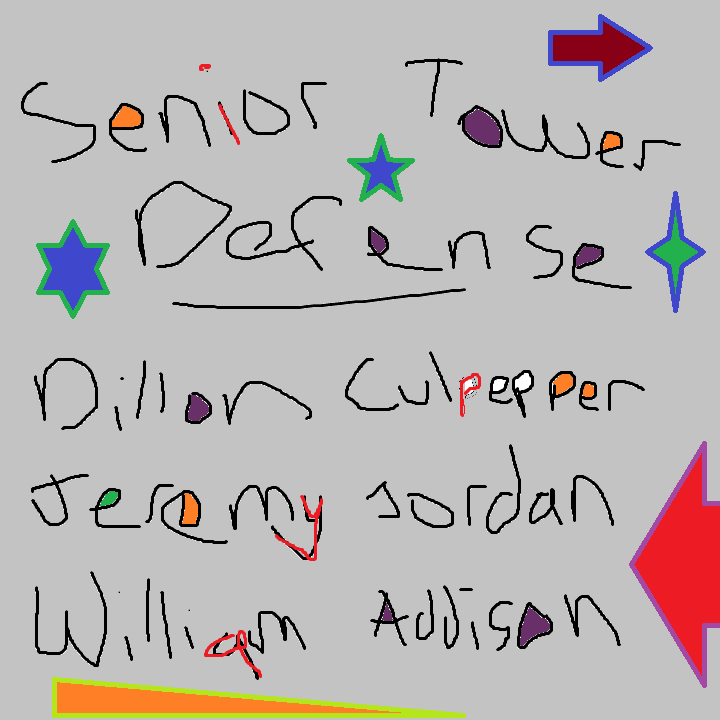 Senior Tower
Defense
Dillon Culpepper
Jeremy Jordan
William Addison